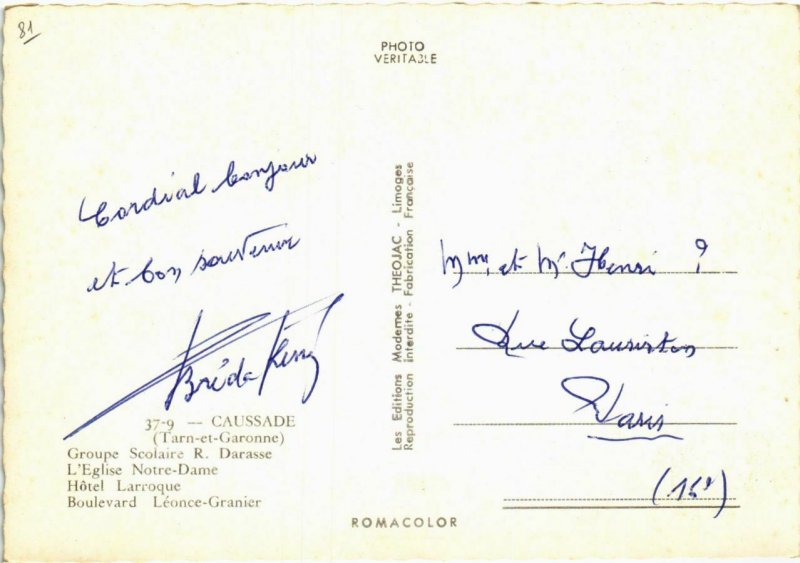 81
PHOTO
VERITABLE
Cordial bonjour
et bon souvenir
37-9 — CAUSSADE
(Tarn-et-Garonne)
Groupe Scolaire R. Darasse
L'Eglise Notre-Dame
Hôtel Larroque
Boulevard Léonce-Granier
Les Editions Modernes THEOJAC - Limoges
Reproduction Interdite - Fabrication Française
Mme et Mr Henri ?
Rue Lauriston
Paris
ROMACOLOR